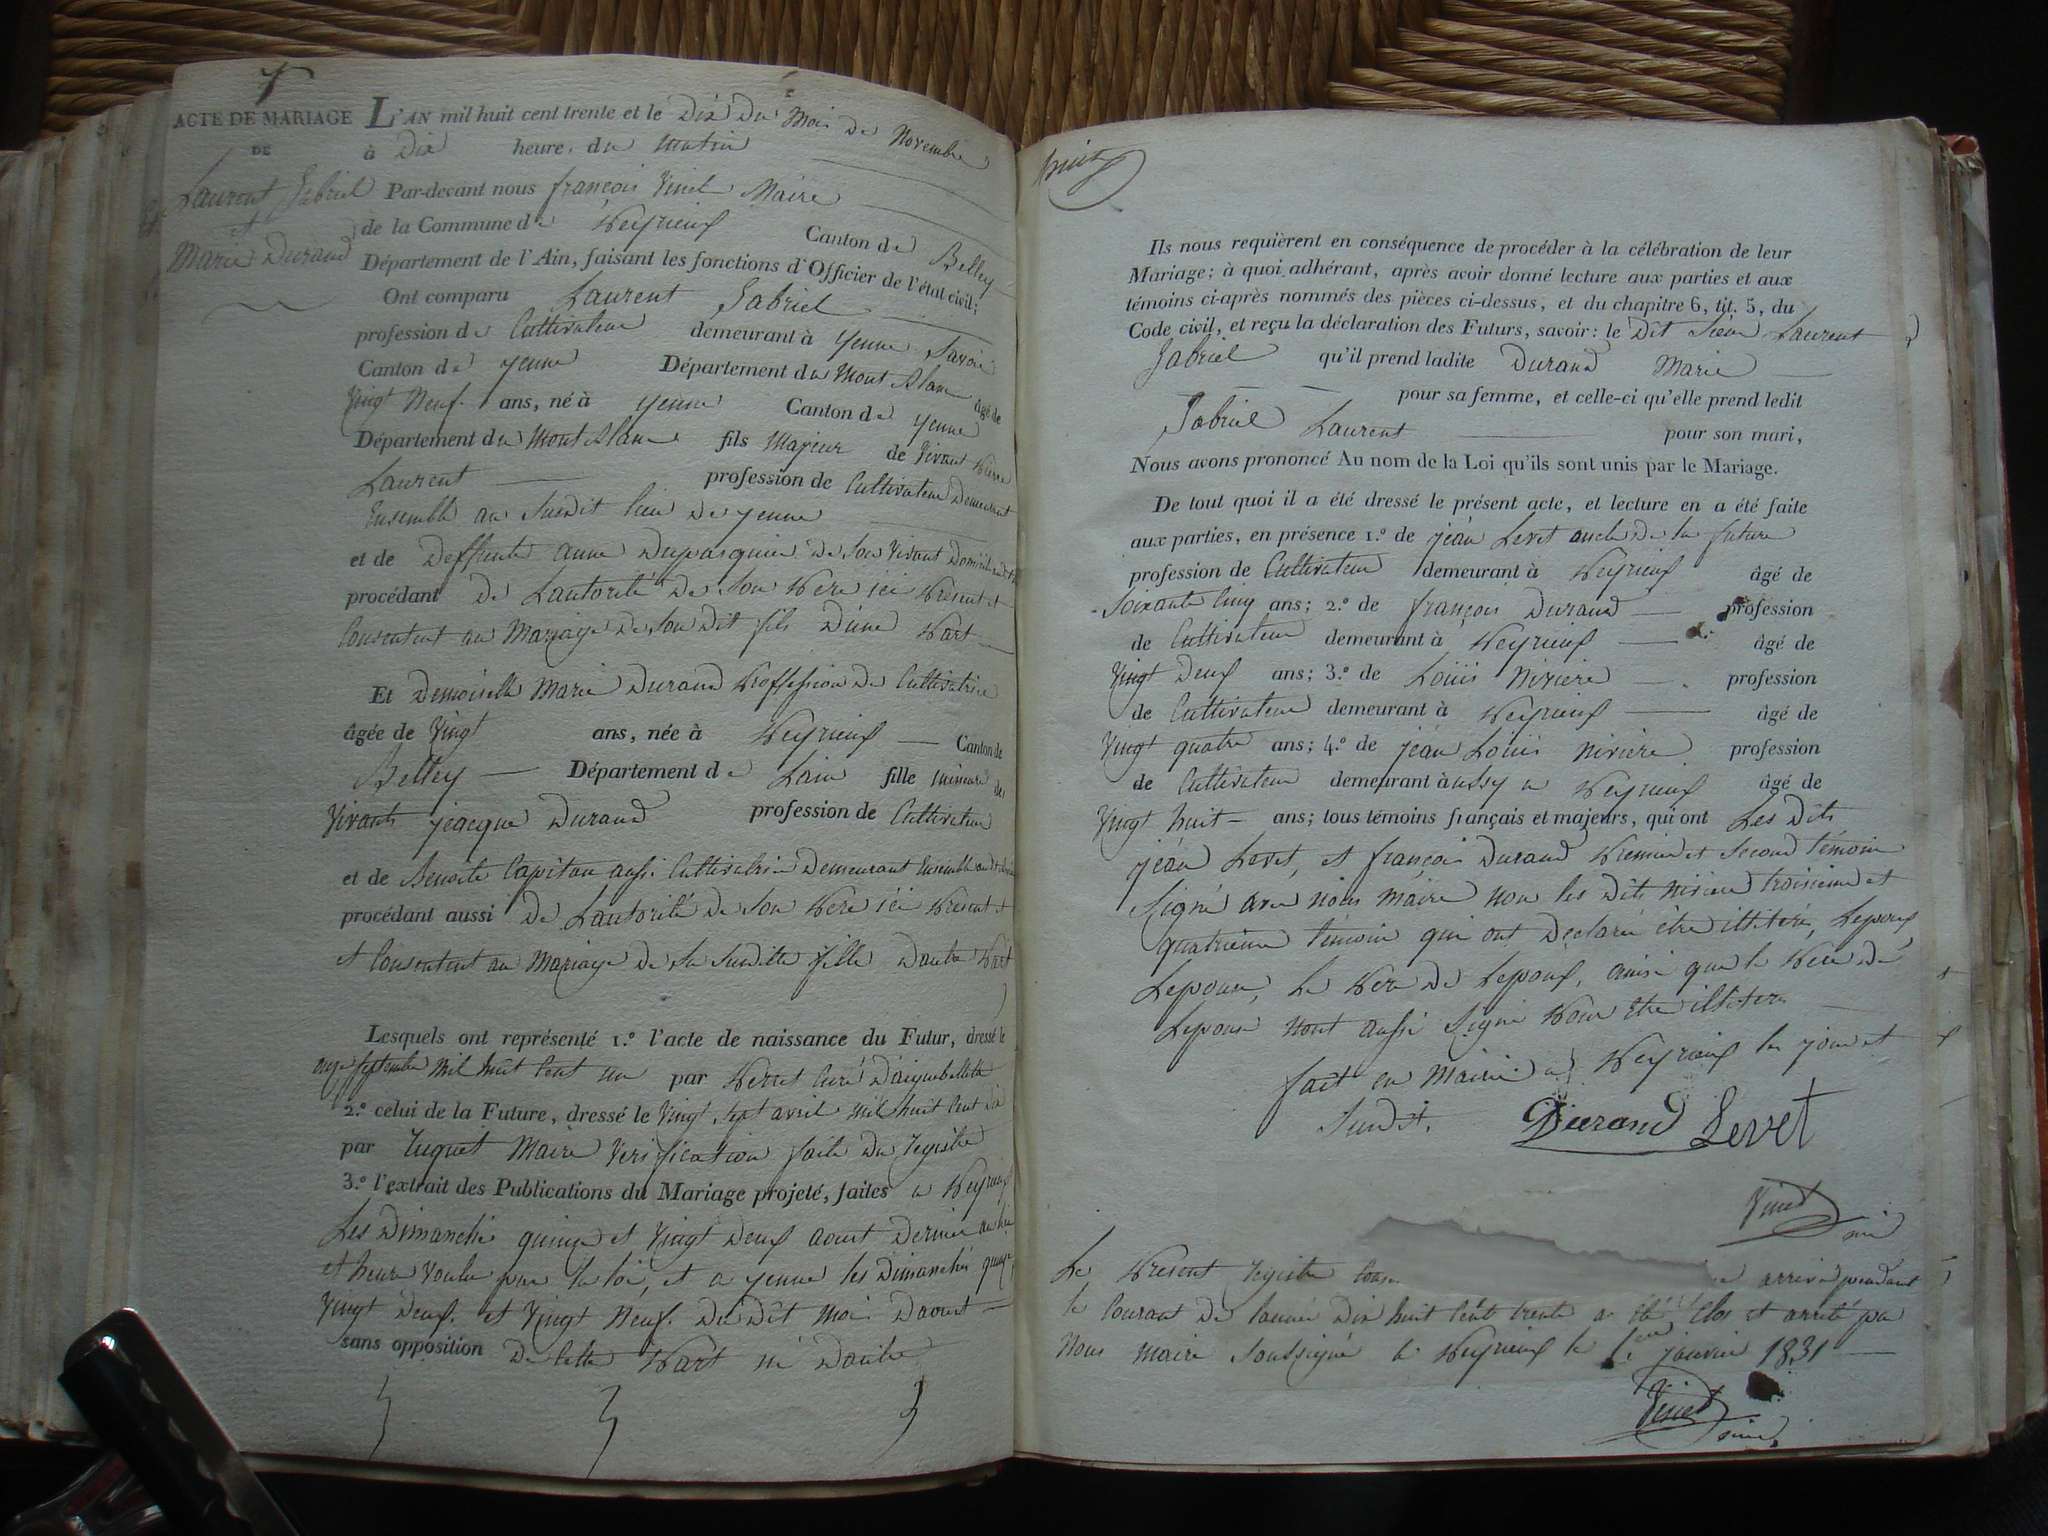 ACTE DE MARIAGE
DE
Laurent Gabriel
et
Marie Durand
L'AN mil huit cent trente et le Dix Du Mois de Novembre
à Dix heure. du Matin
Par-devant nous françois Vinet Maire
de la Commune de Peyrieux Canton de Belley
Département de l'Ain, faisant les fonctions d'Officier de l'état civil;
Ont comparu Laurent Gabriel
profession de Cultivateur demeurant à yenne Savoie
Canton de yenne Département du Mont Blanc âgé de
Vingt Neuf. ans, né à yenne Canton de yenne
Département du Mont Blanc fils Majeur de Vivant Pierre
Laurent profession de Cultivateur Demeurant
Ensemble au Susdit lieu De yenne
et de Deffunte anne Dupasquier De Son Vivant
procédant De Lautorité De Son Père ici Présent et
Consentent au Mariage De Son Dit fils D'une Part
Et Demoiselle Marie Durand Proffession De Cultivatrice
âgée de Vingt ans, née à Peyrieux Canton de
Belley Département de Lain fille mineure de
Vivants jeacque Durand profession de Cultivateur
et de Benoite Capitan aussi Cultivatrice Demeurant Ensemble
procédant aussi De Lautorité De Son Père ici Présent et
et Consentent au Mariage De Sa Susditte fille Dautre Part
Lesquels ont représenté 1.º l'acte de naissance du Futur, dressé le
onze Septembre Mil huit Cent un par Perret Curé D'aiguebellette
2.º celui de la Future, dressé le Vingt Sept avril mil huit Cent Dix
par Tuquet Maire Verification faite Du Registre
3.º l'extrait des Publications du Mariage projeté, faites a Peyrieux
Les Dimanche quinze et Vingt Deux aout Dernier au lieu
et heure Voulu par la loi, et a yenne les Dimanches quinze
Vingt Deux. et Vingt Neuf. Du Dit Moi Daoust
sans opposition De Cette Part ni Dautre
huit
Ils nous requièrent en conséquence de procéder à la célébration de leur
Mariage; à quoi adhérant, après avoir donné lecture aux parties et aux
témoins ci-après nommés des pièces ci-dessus, et du chapitre 6, tit. 5, du
Code civil, et reçu la déclaration des Futurs, savoir: le Dit Sieur Laurent
Gabriel qu'il prend ladite Durand Marie
pour sa femme, et celle-ci qu'elle prend ledit
Gabriel Laurent pour son mari,
Nous avons prononcé Au nom de la Loi qu'ils sont unis par le Mariage.
De tout quoi il a été dressé le présent acte, et lecture en a été faite
aux parties, en présence 1.º de jéan Levet oncle De la future
profession de Cultivateur demeurant à Peyrieux âgé de
Soixante Cinq ans; 2.º de françois Durand profession
de Cultivateur demeurant à Peyrieux âgé de
Vingt Deux ans; 3.º de Loüis Niviere profession
de Cultivateur demeurant à Peyrieux âgé de
Vingt quatre ans; 4.º de jéan Loüis niviere profession
de Cultivateur demeurant à aussy a Peyrieux âgé de
Vingt huit ans; tous témoins français et majeurs, qui ont Les Dits
jéan Levet, et françois Durand Premier et Second témoin
Signé avec nous Maire non les Dits niviere troisieme et
quatrieme témoin qui ont Déclaré être illiteré, Lepoux
Lepouse, Le Père De Lepoux, ainsi que le Père De
Lepouse Nont aussi Signé Pour Etre illiteré
fait en Mairie a Peyrieux les jour et
Susdit.
Durand Levet
Vinet
Le Présent Registre arrivé pendant
le Courant De lannée Dix huit Cent trente a été Clos et arreté par
Nous Maire Soussigné a Peyrieux le 1.er janvier 1831
Vinet